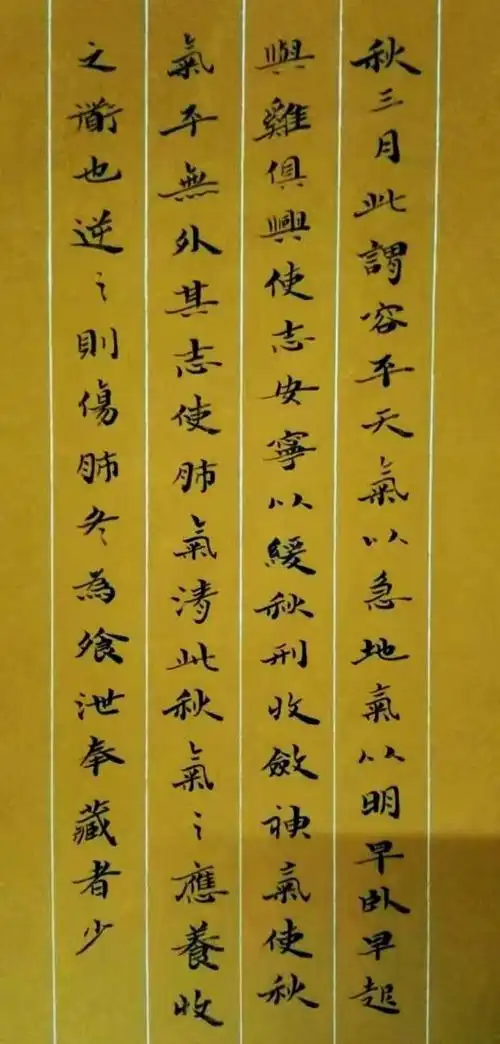 秋三月此謂容平天氣以急地氣以明早臥早起
與雞俱興使志安寧以緩秋刑收斂神氣使秋
氣平無外其志使肺氣清此秋氣之應養收
之道也逆之則傷肺冬為飧泄奉藏者少